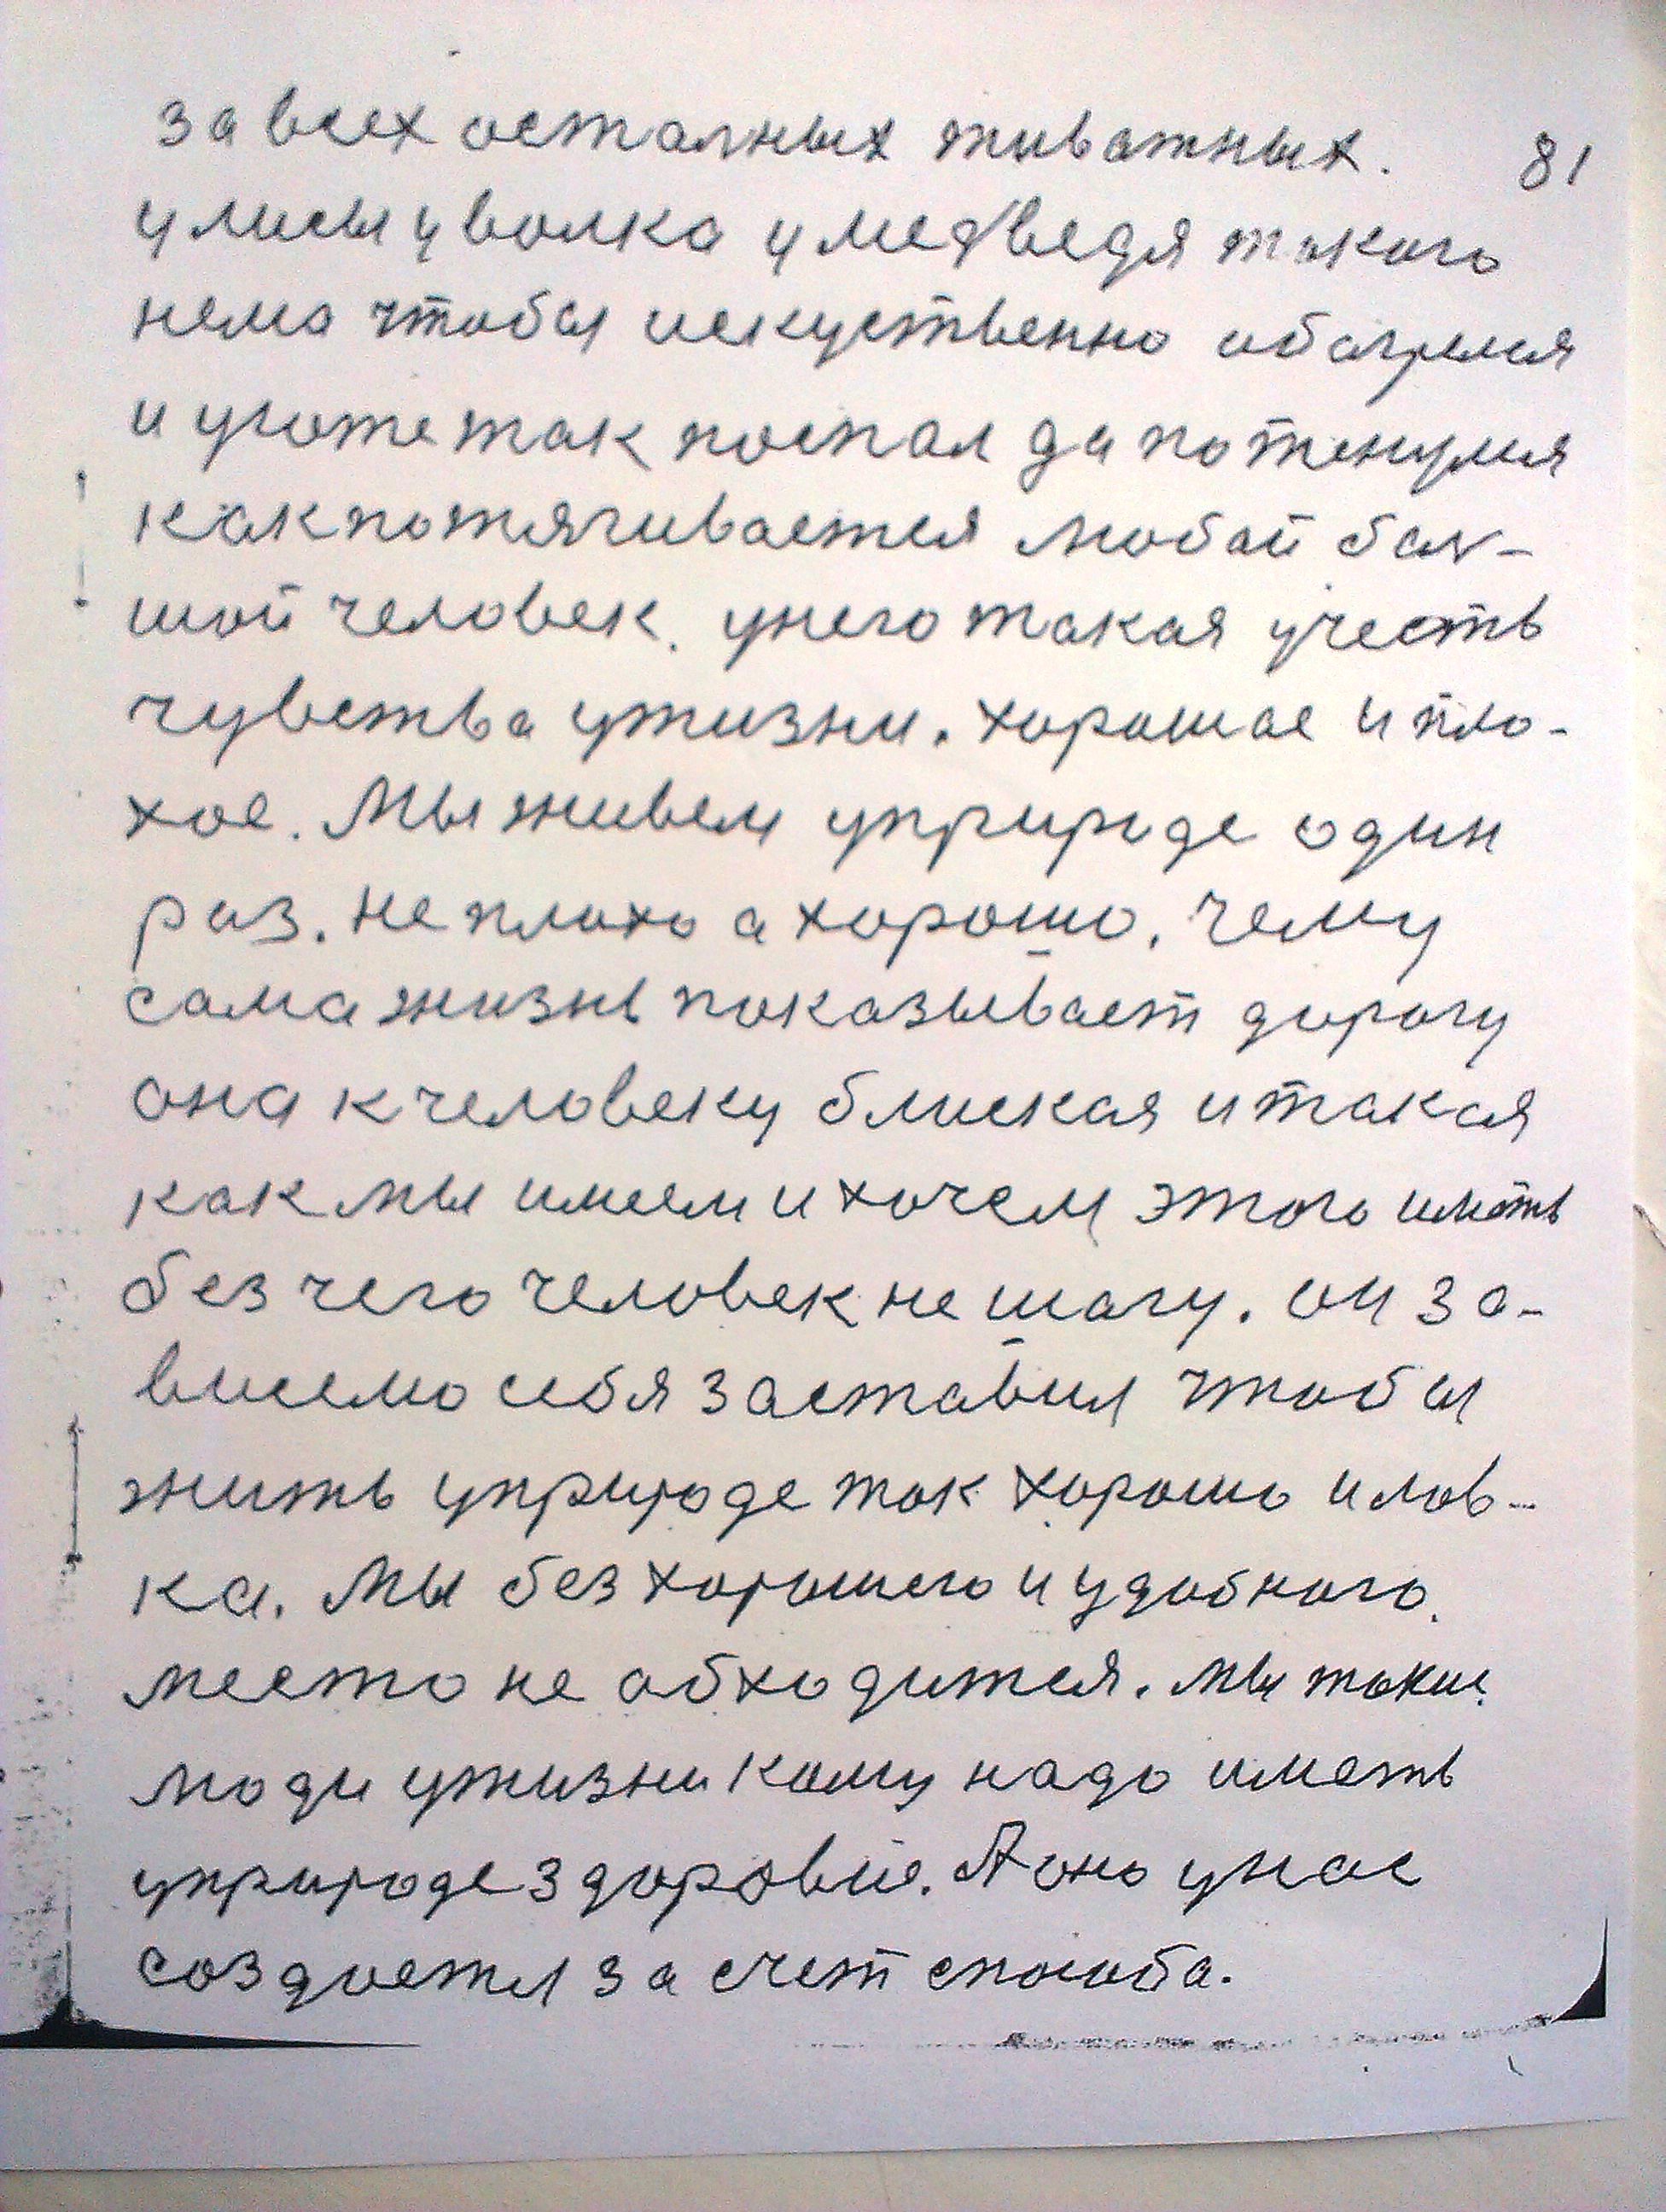 за всех осталных животных. 81
у лисы у волка у медведя такого
нема чтобы искуственно обагрелся
и у ноте так поспал да потенулся
как потягивается любой бол-
шой человек. у него такая учесть
чувства ужизни. хорошае и пло-
хое. Мы живем уприроде один
раз. не плохо а хорошо. чему
сама жизнь показывает дорогу
она к человеку блиская и такая
как мы имеем и хочем этого иметь
без чего человек не шагу. он за-
висемо себя заставил чтобы
жить уприроде так хорошо и лов-
ка. Мы без хорошего и удобного.
место не обходится. мы такие.
люди ужизни кому надо иметь
уприроде здоровие. А оно унас
создается за счет способа.